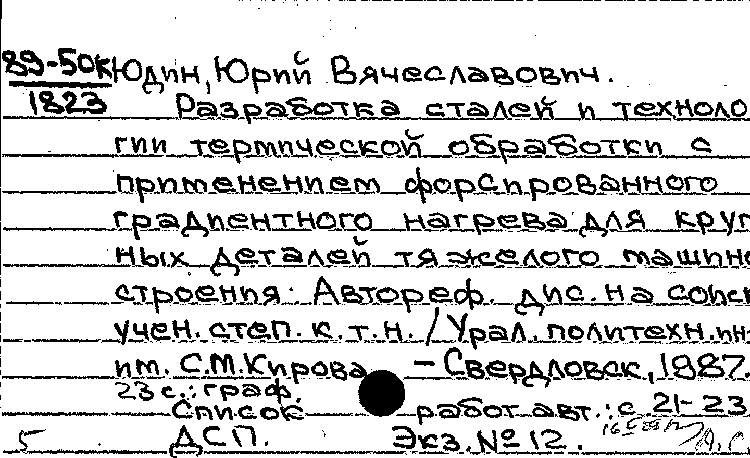 89-50к Юдин, Юрий Вячеславович.
1823 Разработка сталей и техноло
гии термической обработки с
применением форсированного
градиентного нагрева для круп
ных деталей тяжелого машино
строения. Автореф. дис. на соиск
учен. степ. к.т.н. / Урал. политехн. ин
им. С.М. Кирова - Свердловск, 1987.
23 с.: граф.
Список работ авт.: с 21-23
5 ДСП. Экз. № 12.